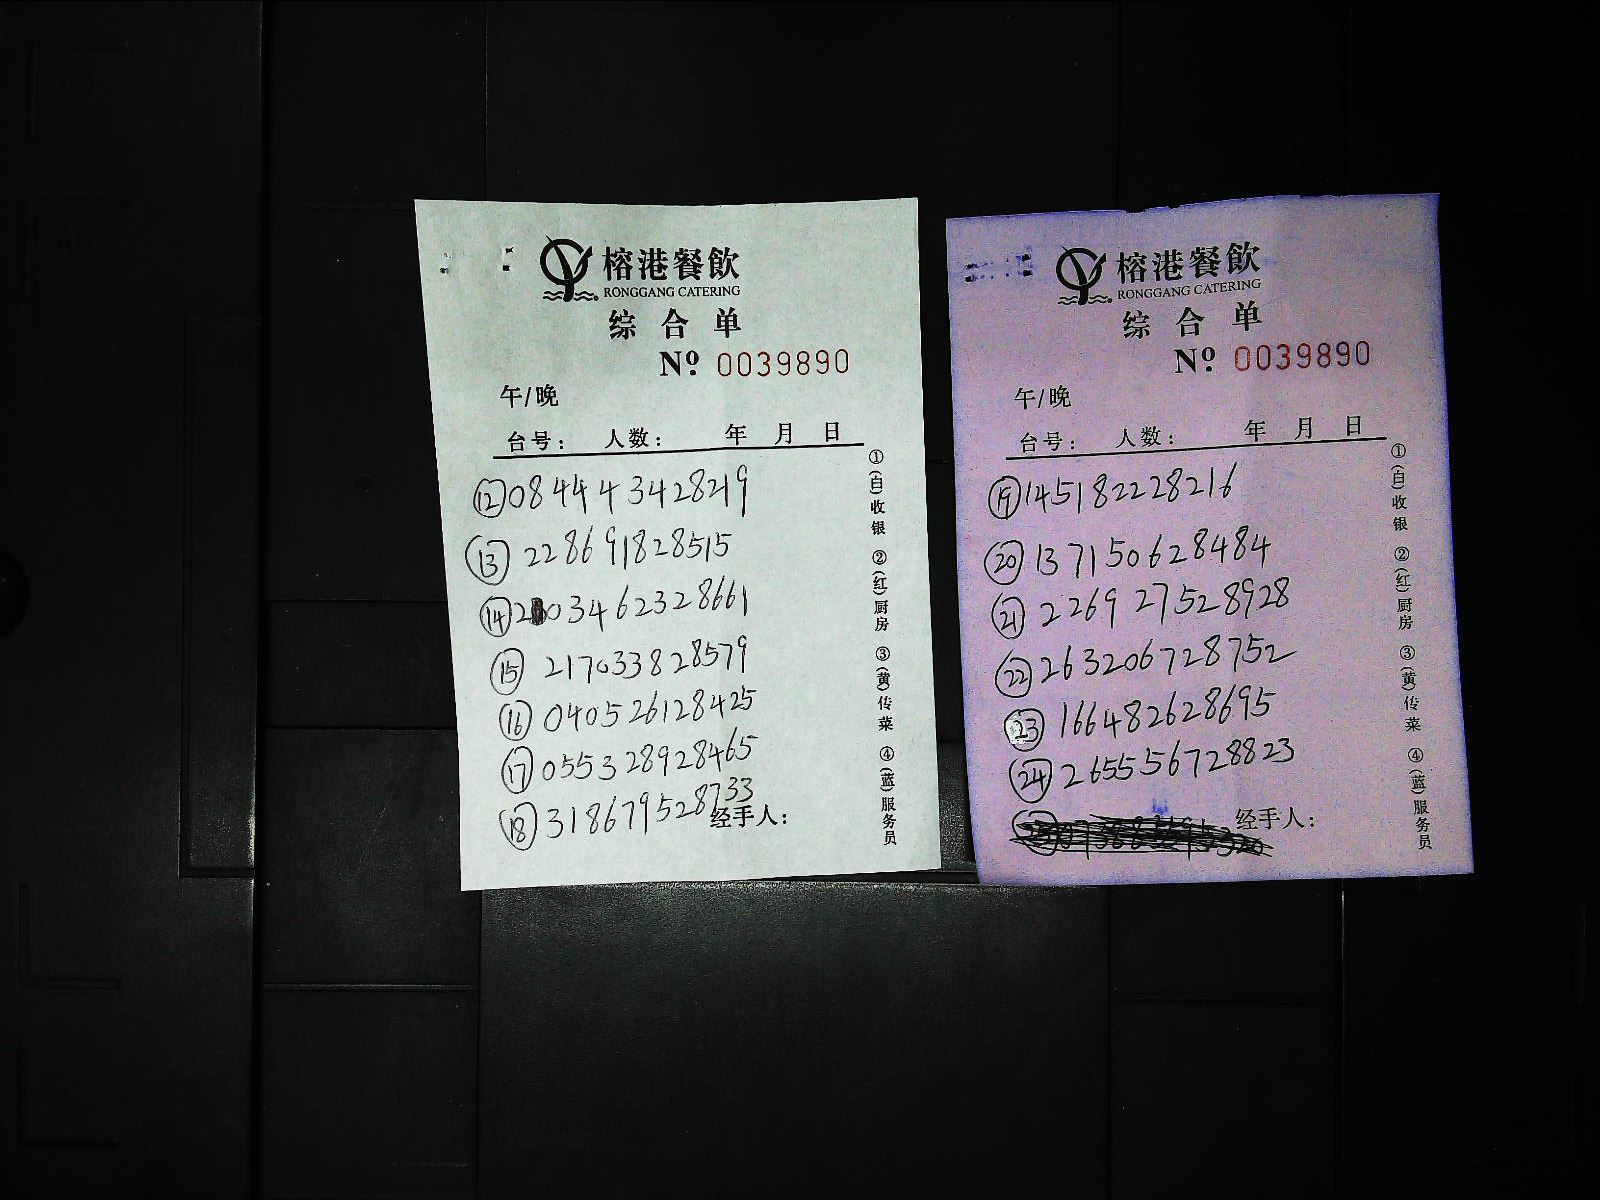 榕港餐飲
RONGGANG CATERING
综合单
Nº 0039890
午/晚
台号: 人数: 年 月 日
⑫ 084443428219
⑬ 228691828515
⑭ 2 0346232 8661
⑮ 217033828579
⑯ 0405261 28425
⑰ 055328928465
⑱ 3186795 28733
经手人:
①(白)收银 ②(红)厨房 ③(黄)传菜 ④(蓝)服务员
榕港餐飲
RONGGANG CATERING
综合单
Nº 0039890
午/晚
台号: 人数: 年 月 日
⑲ 145182228216
⑳ 137150628484
㉑ 226927528928
㉒ 263206728752
㉓ 166482628695
㉔ 2655567 28823
经手人:
①(白)收银 ②(红)厨房 ③(黄)传菜 ④(蓝)服务员